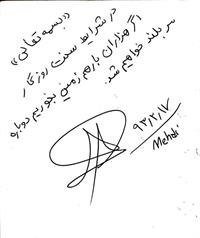 «بسمه تعالی»
در شرایط سخت روزگار
اگر هزاران بار هم زمین بخوریم دوباره
سر بلند خواهیم شد.
۹۳/۲/۱۷
Mehdi